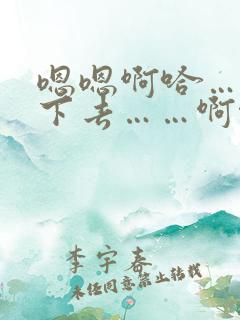 嗯嗯啊哈…
下去……啊
李宇春
未经同意禁止转载